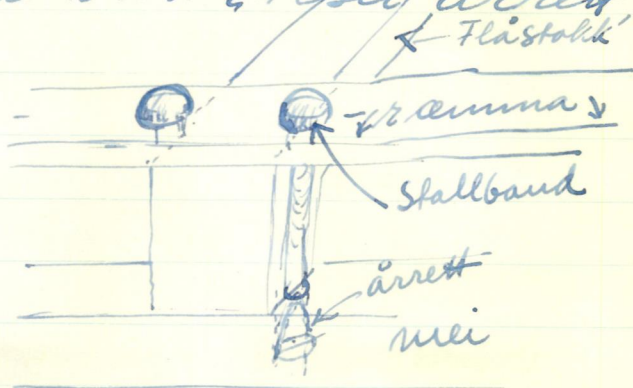 årrett
Flåstokk
ræmma
Stallband
årrett
mei